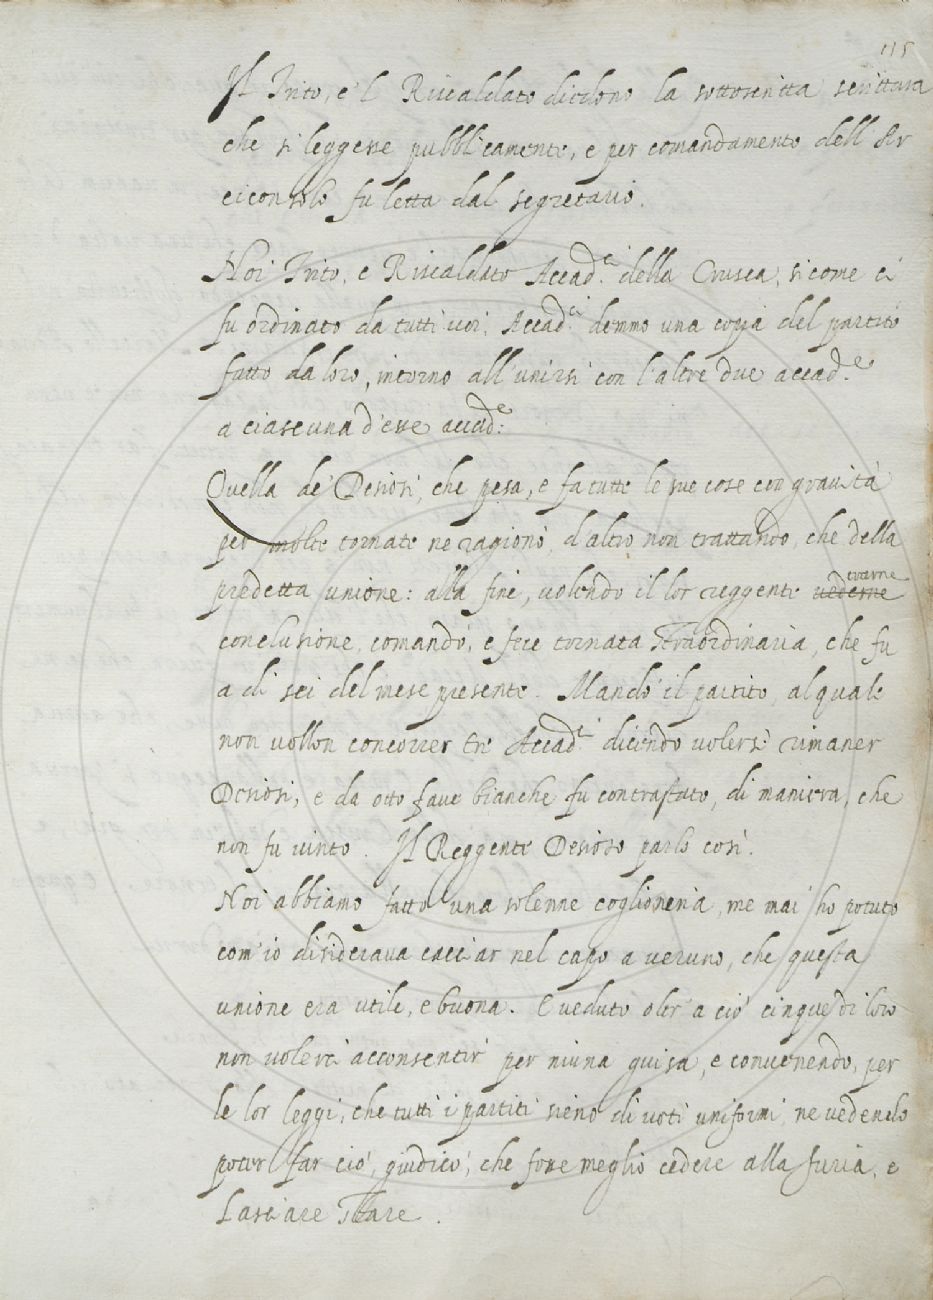 115
Il Trito, e'l Riscaldato diedono la sottoscritta scrittura
che si leggesse pubblicamente, e per comandamento dell'Ar
ciconsolo fu letta dal segretario.
Noi Trito, e Riscaldato Accad.ci della Crusca, sicome ci
fu ordinato da tutti voi, Accad.ci demmo una copia del partito
fatto da loro, intorno all'unirsi con l'altre due accad.e
a ciascuna d'esse accad.e
Quella de' Desiosi, che pesa, e fa tutte le sue cose con gravità
per molte tornate ne ragionò, d'altro non trattando, che della
predetta unione: alla fine, volendo il lor reggente vederne trarne
conclusione, comandò, e fece tornata straordinaria, che fu
a di sei del mese presente. Mandò il partito, al quale
non vollon concorrer tre Accad.ci dicendo volersi rimaner
Desiosi, e da otto fave bianche fu contrastato, di maniera, che
non fu vinto. Il Reggente Desioso parlò così.
Noi abbiamo fatto una solenne coglioneria, ne mai ho potuto
com'io disiderava cacciar nel capo a veruno, che questa
unione era utile, e buona. E veduto oltr'a ciò cinque di loro
non volerci acconsentir per niuna guisa, e convenendo, per
le lor leggi, che tutti i partiti sieno di voti uniformi, ne vedendo
poter far ciò, giudicò, che fosse meglio cedere alla furia, e
lasciare stare.